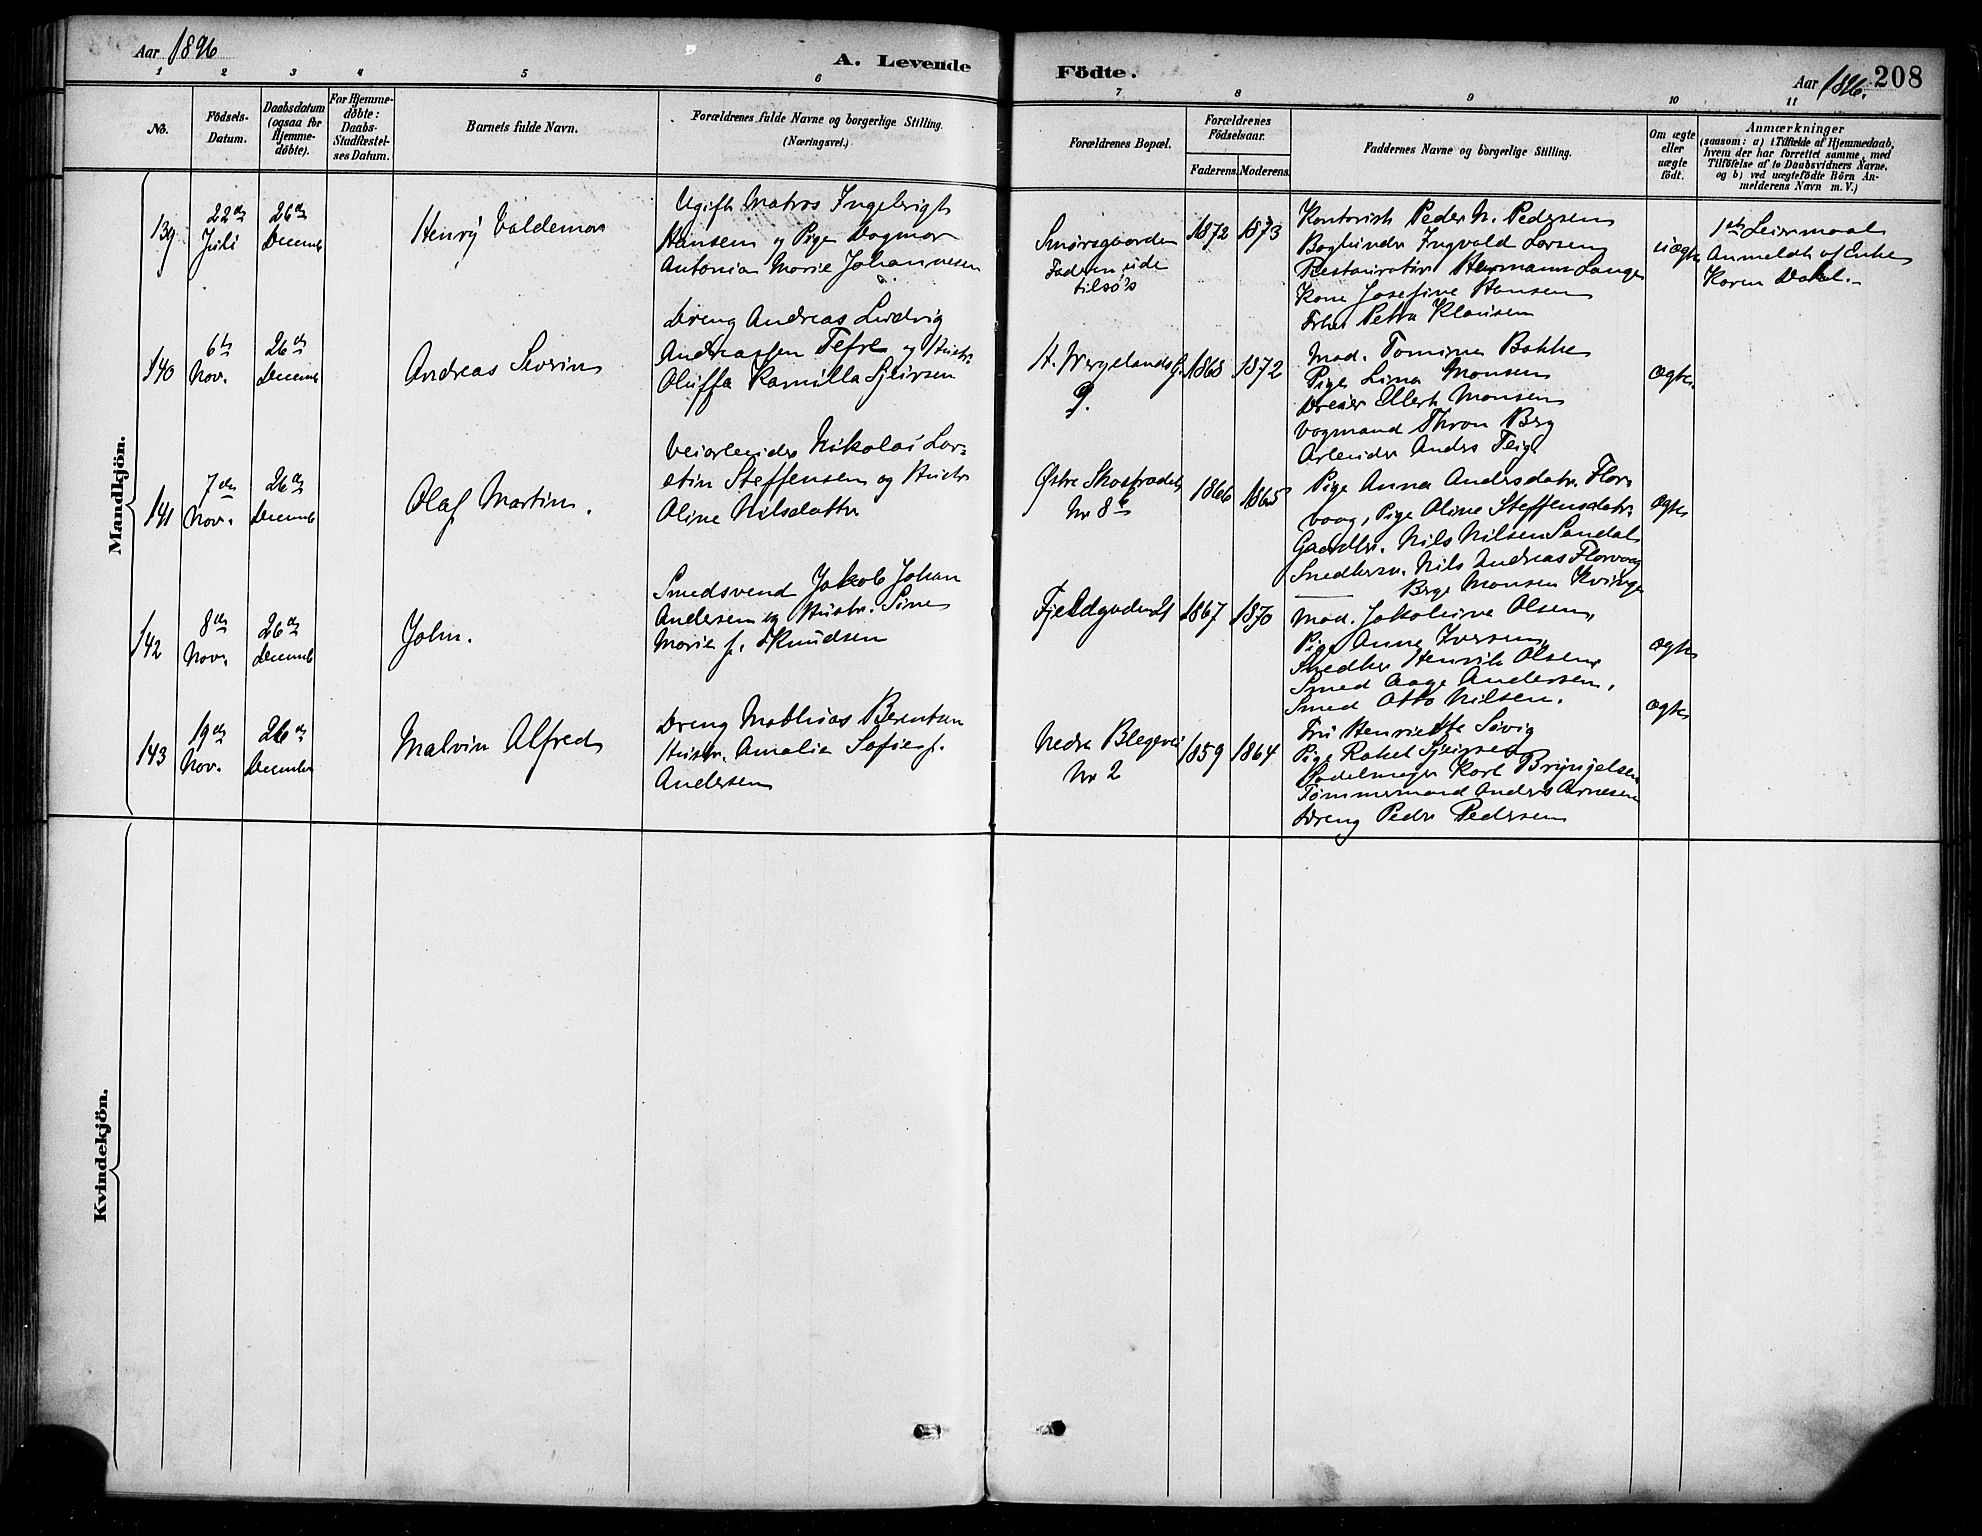 Aar 1896
A. Levende
Födte.
Aar 1896.
208
1 2 3 4 5 6 7 8 9 10 11
No.
Födsels-
Datum.
Daabsdatum
(ogsaa for
Hjemme-
döbte).
For Hjemme-
döbte:
Daabs-
Stadfæstel-
ses Datum.
Barnets fulde Navn.
Forældrenes fulde Navne og borgerlige Stilling.
(Næringsvei.)
Forældrenes Bopæl.
Forældrenes
Födselsaar.
Faderens. Moderens.
Faddernes Navne og borgerlige Stilling.
Om ægte
eller
uægte
födt.
Anmærkninger
(saasom: a) i Tilfælde af Hjemmedaab,
hvem der har forrettet samme, med
Tilföielse af to Daabsvidners Navne,
og b) ved uægtefödte Börn An-
melderens Navn m. V.)
Mandkjön.
139
22de
Juli
26de
Decemb
Henry Valdemar
Ugift Matros Ingebrigt
Hansen og Pige Dagmar
Antonia Marie Johannesen
Smørsgaarden
Faderen ude
tilsø's
1872
1873
Kontorist Peder N. Pedersen
Bogbinder Ingvald Larsen
Restauratør Hermann Lange
Kone Josefine Hansen
Petra Klausen
uægte
1ste Leiermaal
Anmeldt af Enke
Karen Dahl.
140
6te
Nov.
26de
Decemb
Andreas Severin
Dreng Andreas Ludvig
Andreassen Tefre og Hustr.
Oluffa Kamilla Sjursen
H. Wergelands G.
9.
1868
1872
Mad. Tomine Bakke
Pige Lina Monsen
Dreier Ellert Monsen
Vognmand Thron Berg
Arbeider Anders Teige
ægte
141
7de
Nov.
26de
Decemb
Olaf Martin.
Veiarbeider Nikolai Lau-
Steffensen og Hustr
Oline Nilsdatter
Østre Skostrædet
Nr 8b
1866
1865
Pige Anna Andersdatr. Flor-
vaag, Pige Oline Steffensdatr.
Gaardbr. Nils Nilsen Sandal
Nils Andreas Florvaag
Berge Monsen Kvinge
ægte
142
8de
Nov.
26de
Decemb
John.
Smedsvend Jakob Johan
Andersen og Hustr. Sine
Marie f. Knudsen
Fjeldgaden 21
1867
1870
Mad. Jakobine Olsen,
Pige Anna Iversen,
Henrik Olsen
Smed Aage Andersen,
Smed Otto Nilsen.
ægte
143
19de
Nov.
26de
December
Malvin Alfred
Dreng Mathias Berentsen
Hustr. Amalie Sofie f.
Andersen
Nedre Blegevei
Nr 2
1859
1864
Fru Henriette Søvig
Pige Rakel Sjursen
Karl Brynjelsen
Tømmermand Anders Arnesen
Dreng Peder Pedersen
ægte
Kvindekjön.